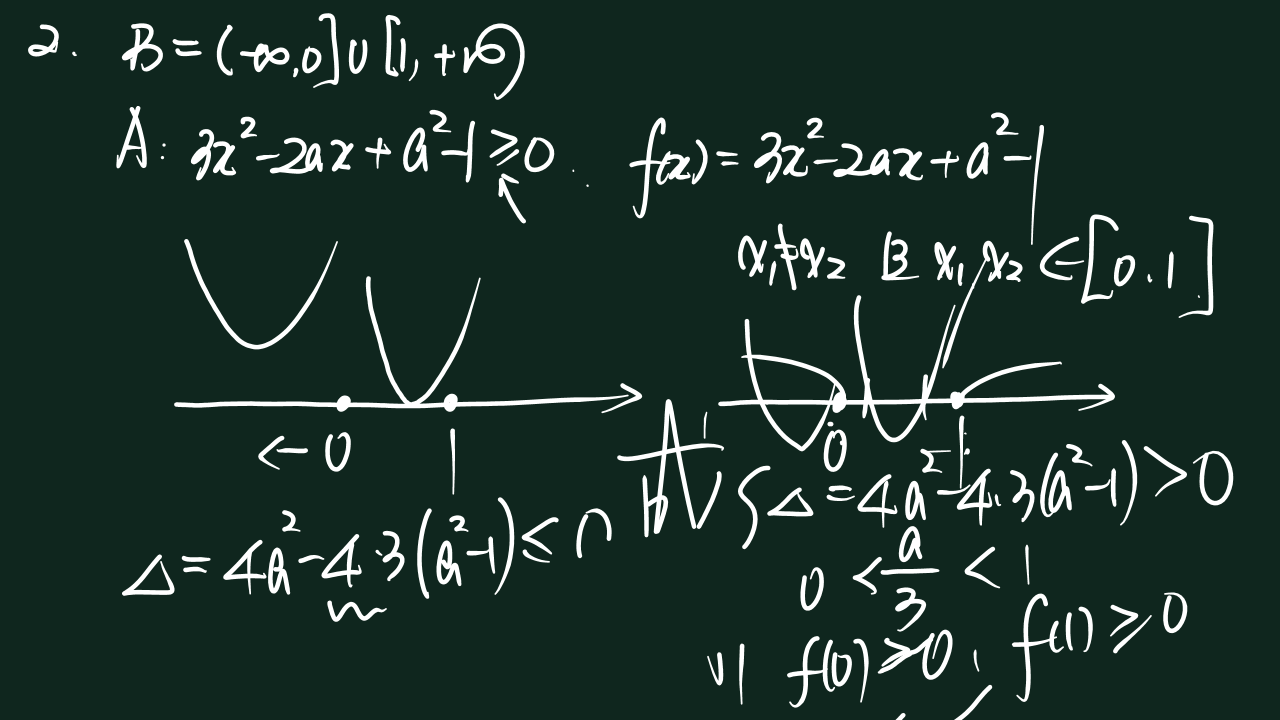 2. B = (-∞, 0] ∪ [1, +∞)
A: 3x²-2ax+a²-1≥0 f(x)=3x²-2ax+a²-1
x₁≠x₂ 且 x₁ x₂ ∈ [0.1]
← 0 1
0 1
Δ=4a²-4·3(a²-1)≤0
{ Δ=4a²-4·3(a²-1)>0
0<a/3<1
f(0)≥0, f(1)≥0